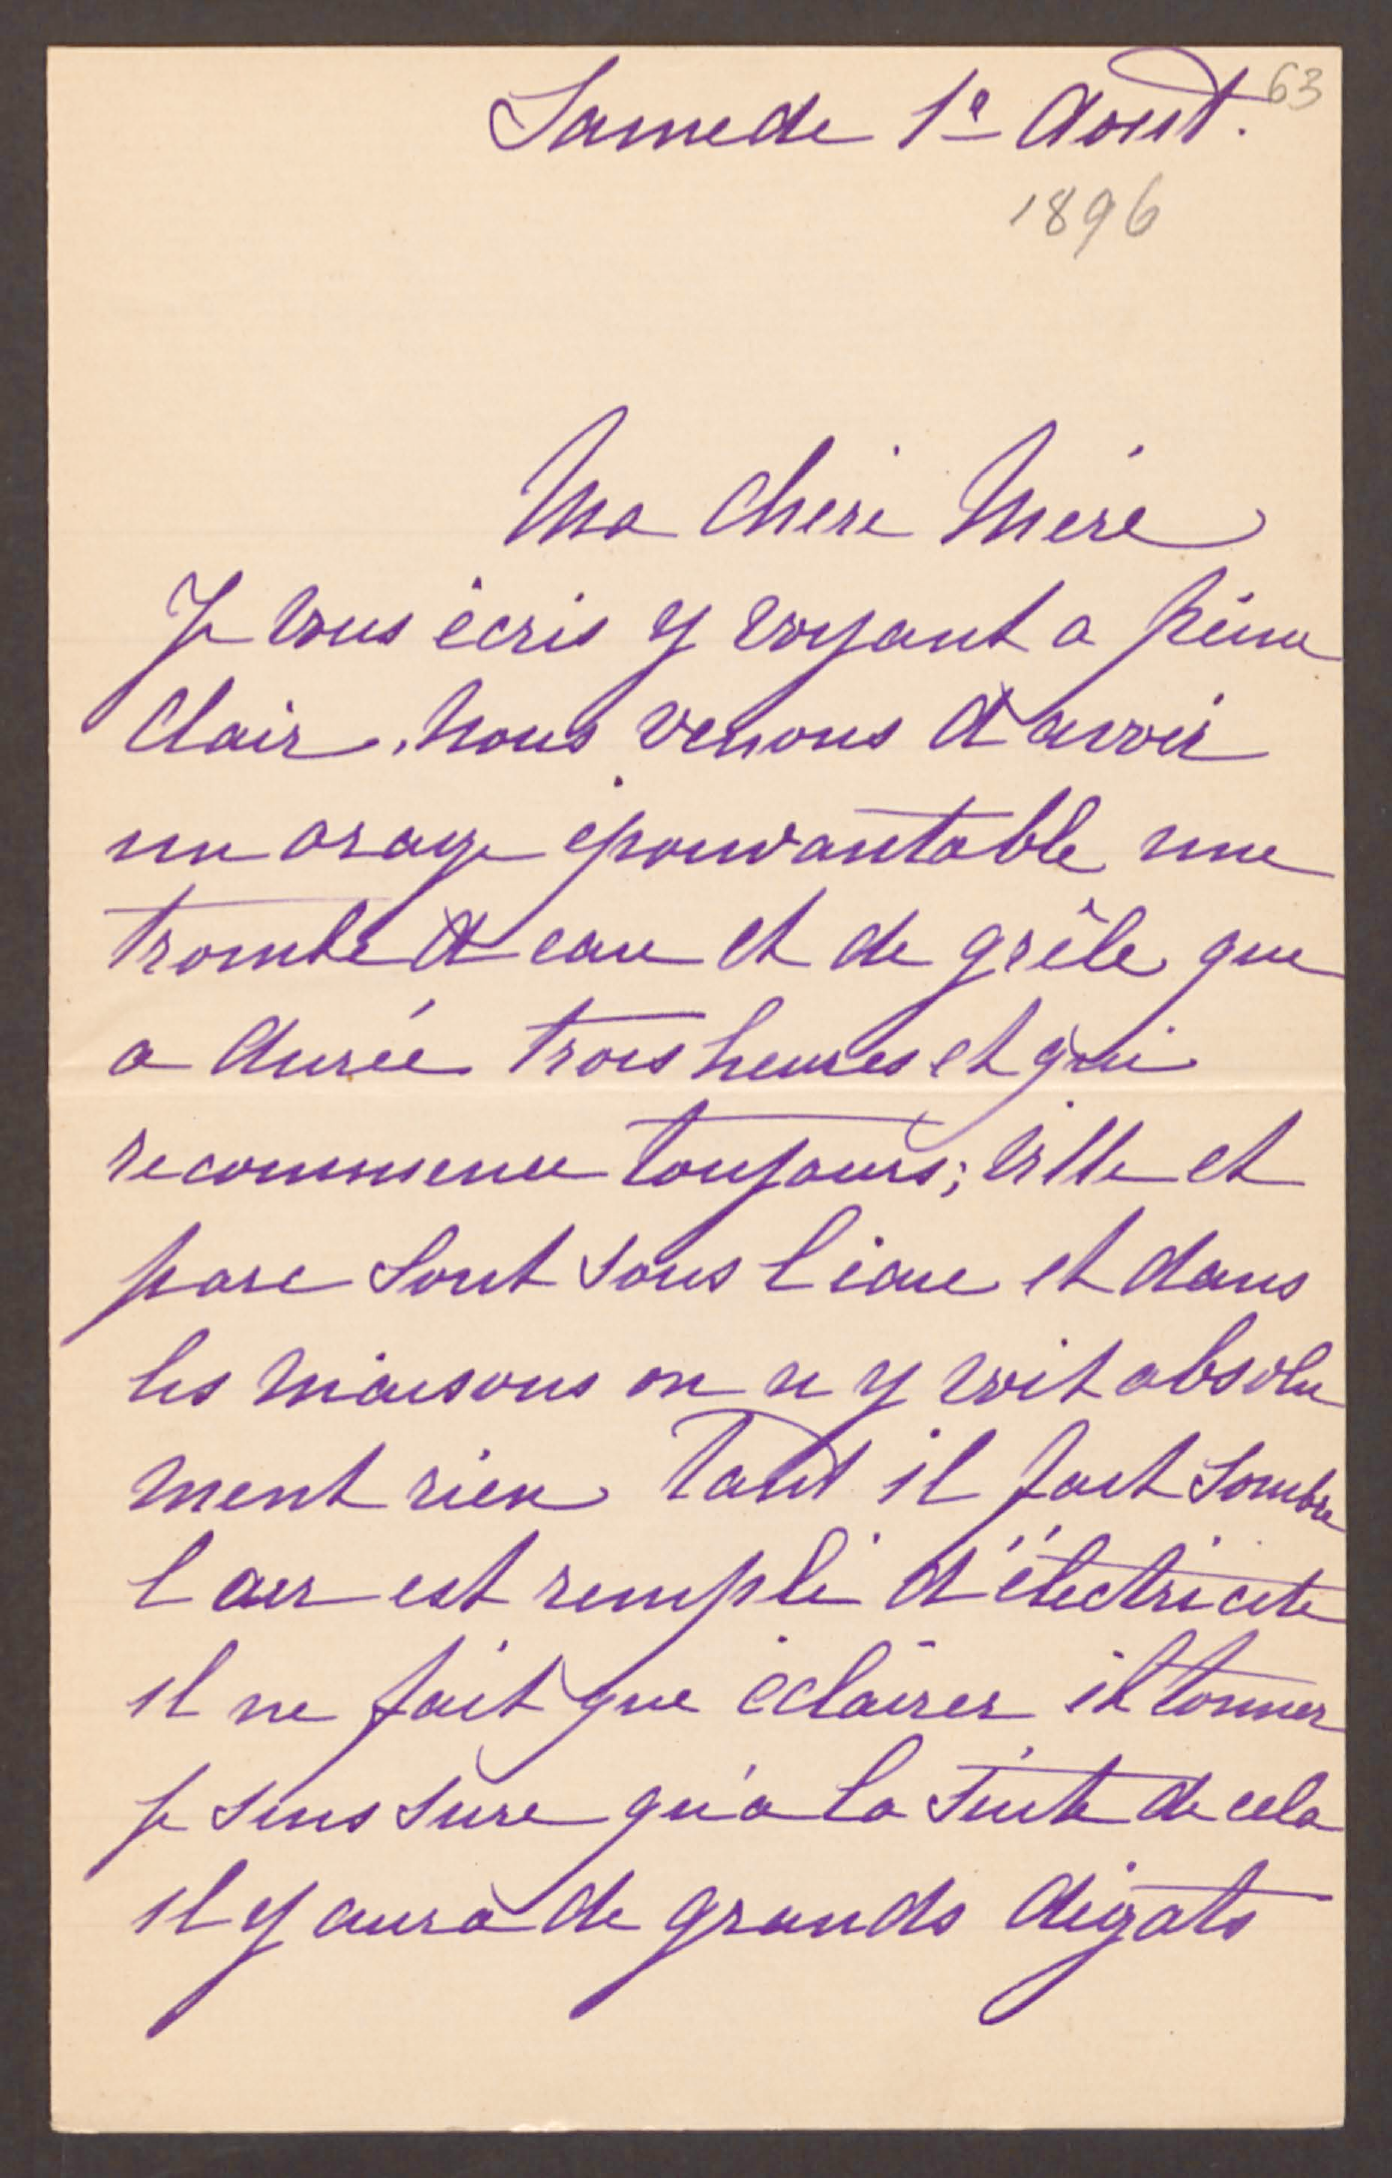 63
Samedi 1e Aout.
1896
Ma Cheré Meré
Je vous écris y voyant a peine
clair, nous venons d'avoir
un orage épouvantable une
trombe d'eau et de grêle que
a durée trois heures et qui
recommence toujours; ville et
parc sont sous l'eau et dans
les maisons on n y voit absolu
ment rien tant il fait sombre
l air est rempli d'électricité
il ne fait que éclairer et tonner
je suis sure qu'a la suite de cela
il y aura de grands dégats